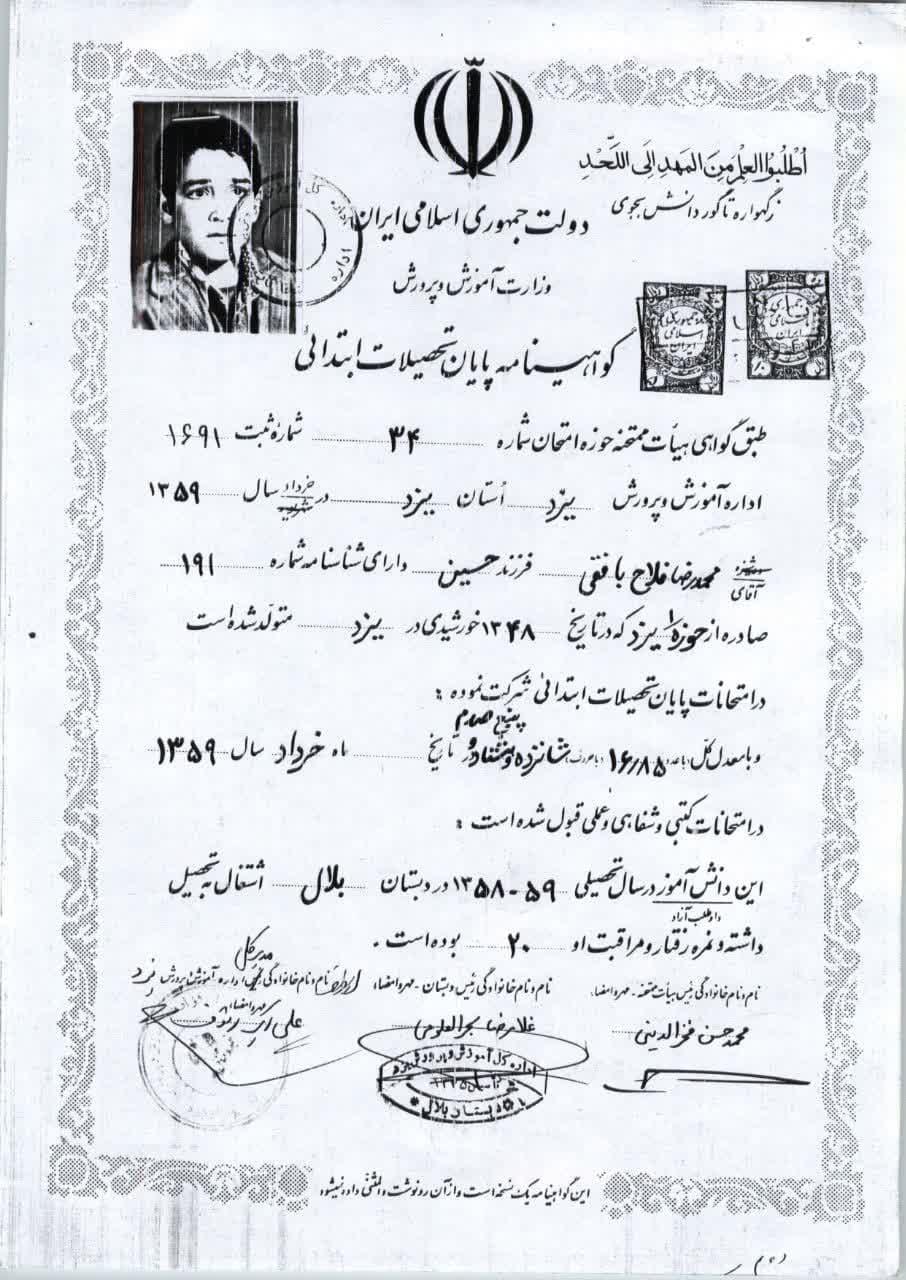 اُطْلُبُوا العِلْمَ مِنَ المَهدِ اِلَى اللَّحْدِ
زگهواره تا گور دانش بجوی
دولت جمهوری اسلامی ایران
وزارت آموزش و پرورش
گواهینامه پایان تحصیلات ابتدائی
طبق گواهی هیأت ممتحنه حوزه امتحان شماره ۳۴ شماره ثبت ۱۶۹۱
اداره آموزش و پرورش یزد اُستان یزد در خرداد سال ۱۳۵۹
آقای محمدرضا فلاح بافقی فرزند حسین دارای شناسنامه شماره ۱۹۱
صادره از حوزه ۱ یزد که در تاریخ ۱۳۴۸ خورشیدی در یزد متولّد شده است
در امتحانات پایان تحصیلات ابتدائی شرکت نموده :
و با معدل کلّ با عدد ۱۶/۸۵ با حروف شانزده و هشتاد و پنج صدم تاریخ ماه خرداد سال ۱۳۵۹
در امتحانات کتبی و شفاهی و عملی قبول شده است :
این دانش آموز در سال تحصیلی ۵۹-۱۳۵۸ در دبستان بلال اشتغال به تحصیل
داوطلب آزاد
داشته و نمره رفتار و مراقبت او ۲۰ بوده است .
نام و نام خانوادگی رئیس هیأت ممتحنه - مهر و امضاء
محمد حسن فخرالدینی
نام و نام خانوادگی رئیس دبستان - مهر و امضاء
غلامرضا بحرالعلومی
مدیر کل
نام و نام خانوادگی اداره آموزش و پرورش یزد
مهر و امضاء
اداره کل آموزش و پرورش یزد
دبستان بلال
این گواهینامه یک نسخه است و از آن رونوشت و المثنّی داده نمیشود